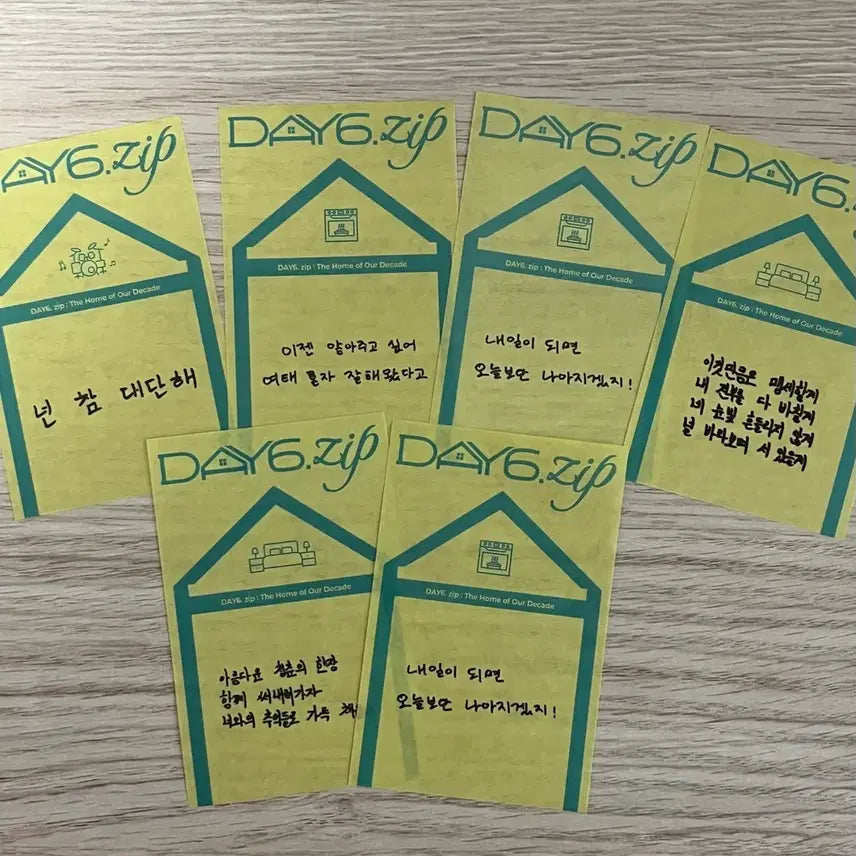 DAY6.zip
DAY6. zip : The Home of Our Decade
넌 참 대단해
DAY6.zip
DAY6. zip : The Home of Our Decade
이젠 알아주고 싶어
여태 혼자 잘해왔다고
DAY6.zip
DAY6. zip : The Home of Our Decade
내일이 되면
오늘보단 나아지겠지!
DAY6.
DAY6. zip : The Home of Our Decade
이것만큼은 맹세할게
내 전부를 다 바칠게
네 눈빛 흔들리지 않게
널 바라보며 서 있을게
DAY6.zip
DAY6. zip : The Home of Our Decade
아름다운 청춘의 한장
함께 써내려가자
너와의 추억들로 가득
DAY6.zip
DAY6. zip : The Home of Our Decade
내일이 되면
오늘보단 나아지겠지!